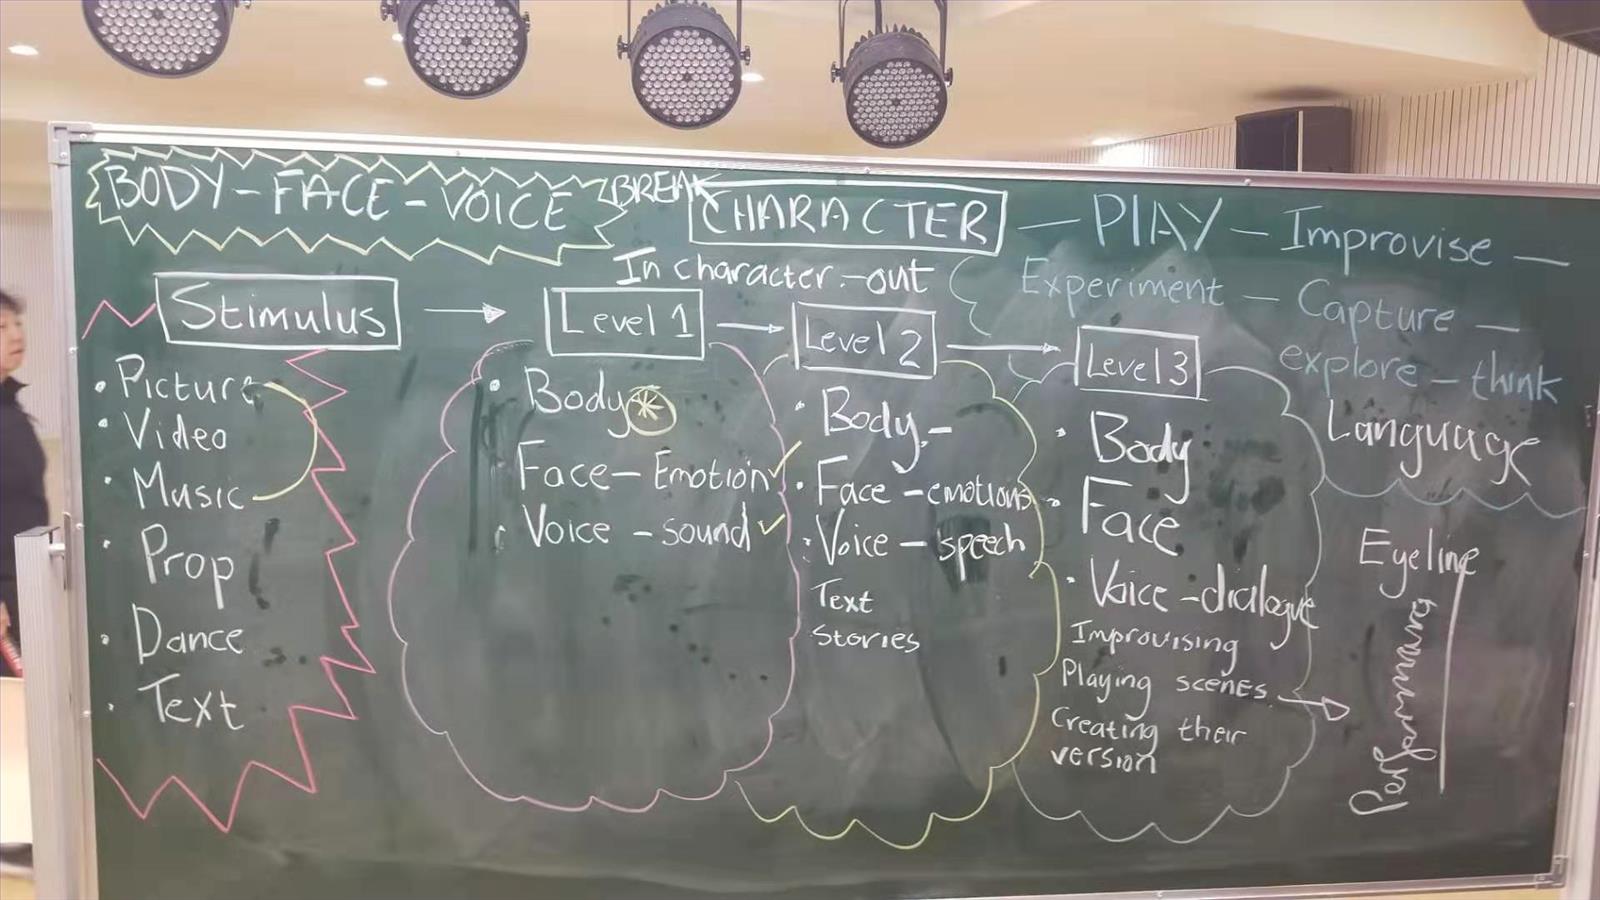 BODY - FACE - VOICE
BREAK
CHARACTER - PLAY - Improvise -
In character - out
Experiment - Capture -
explore - think
Language
Stimulus
• Picture
• Video
• Music
• Prop
• Dance
• Text
Level 1
• Body *
Face - Emotion ✓
• Voice - sound ✓
Level 2
• Body -
• Face - emotions
• Voice - speech
Text
Stories
Level 3
• Body
• Face
• Voice - dialogue
Improvising
Playing scenes
Creating their
version
Eyeline